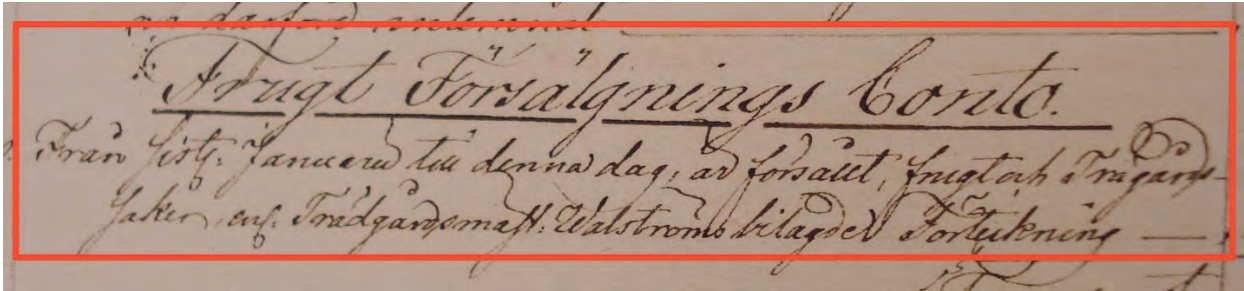 Frugt Försälgnings Conto.
Från sistl: Januarii till denna dag, är försålt, frugt och Trägårds-
saker, enl. Trädgårdsmäst: Walströms bilagder Förteckning —